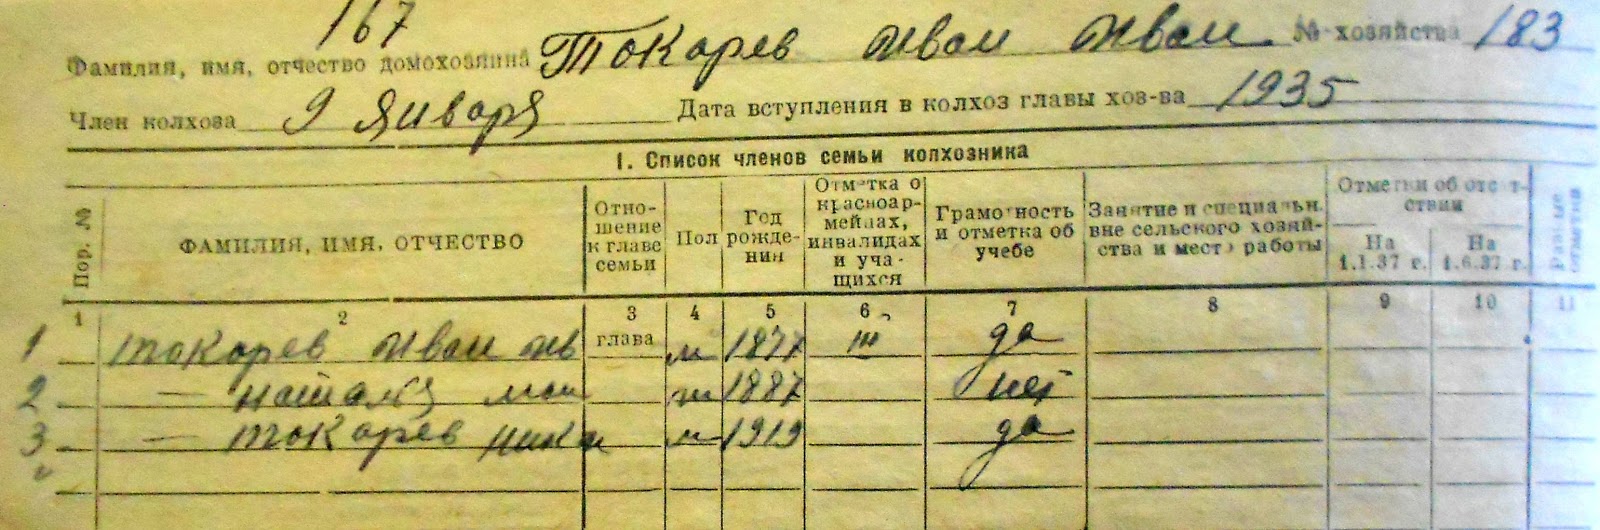 167
Фамилия, имя, отчество домохозяина Токарев Иван Иван №-хозяйства 183
Член колхоза 9 Января Дата вступления в колхоз главы хоз-ва 1935
I. Список членов семьи колхозника
Пор. № ФАМИЛИЯ, ИМЯ, ОТЧЕСТВО Отно-шение к главе семьи Пол Год рожде-ния Отметка о красноар-мейцах, инвалидах и уча-щихся Грамотность и отметка об учебе Занятие и специальн. вне сельского хозяй-ства и место работы Отметки об отсут-ствии На 1.1.37 г. На 1.6.37 г. Разные отметки
1 2 3 4 5 6 7 8 9 10 11
1 Токарев Иван Ив глава м 1877 III да
2 — Наталя ж 1887 нет
3 — Токарев Ники м 1919 да